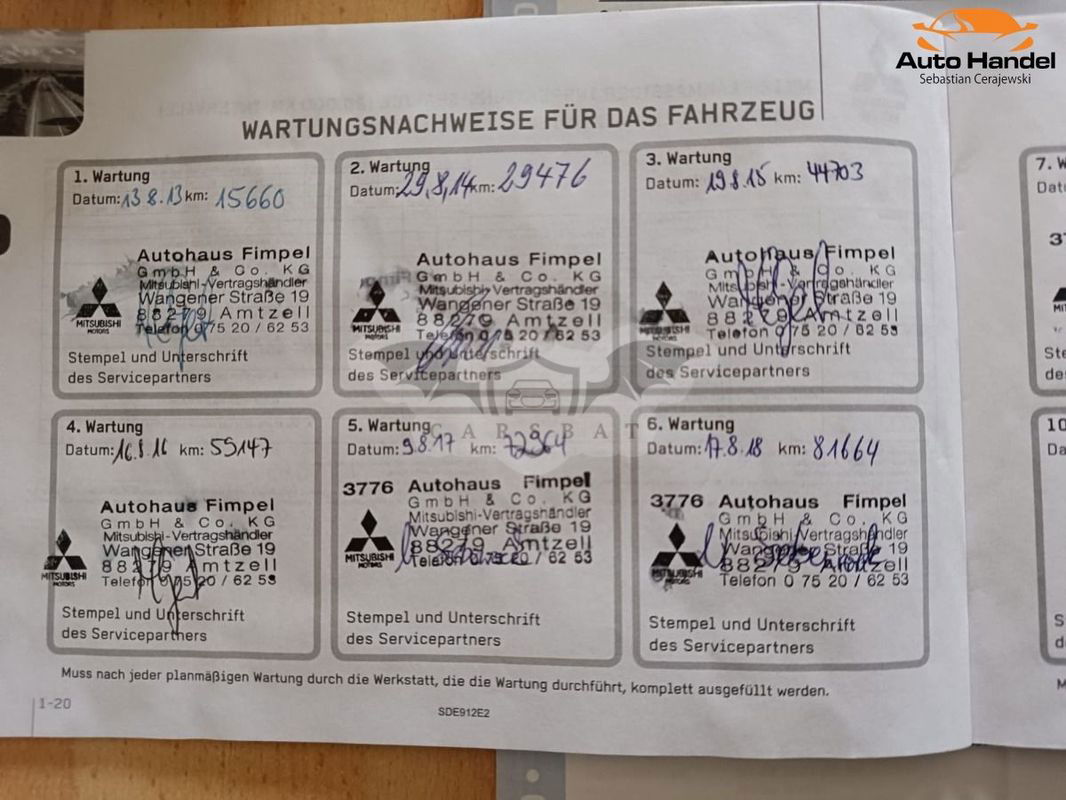 Auto Handel
Sebastian Cerajewski
WARTUNGSNACHWEISE FÜR DAS FAHRZEUG
1. Wartung
Datum: 13 8.13 km: 15660
Autohaus Fimpel
GmbH & Co. KG
Mitsubishi-Vertragshändler
Wangener Straße 19
88279 Amtzell
Telefon 0 75 20 / 62 53
MITSUBISHI
MOTORS
Stempel und Unterschrift
des Servicepartners
2. Wartung
Datum: 29.8.14 km: 29476
Autohaus Fimpel
GmbH & Co. KG
Mitsubishi-Vertragshändler
Wangener Straße 19
88279 Amtzell
Telefon 0 75 20 / 62 53
MITSUBISHI
MOTORS
Stempel und Unterschrift
des Servicepartners
3. Wartung
Datum: 19.8.15 km: 44703
Autohaus Fimpel
GmbH & Co. KG
Mitsubishi-Vertragshändler
Wangener Straße 19
88279 Amtzell
Telefon 0 75 20 / 62 53
MITSUBISHI
MOTORS
Stempel und Unterschrift
des Servicepartners
4. Wartung
Datum: 16.8.16 km: 59147
Autohaus Fimpel
GmbH & Co. KG
Mitsubishi-Vertragshändler
Wangener Straße 19
88279 Amtzell
Telefon 0 75 20 / 62 53
MITSUBISHI
MOTORS
Stempel und Unterschrift
des Servicepartners
5. Wartung
Datum: 9.8.17 km: 72964
3776 Autohaus Fimpel
GmbH & Co. KG
Mitsubishi-Vertragshändler
Wangener Straße 19
88279 Amtzell
Telefon 0 75 20 / 62 53
MITSUBISHI
MOTORS
Stempel und Unterschrift
des Servicepartners
6. Wartung
Datum: 17.8.18 km: 81664
3776 Autohaus Fimpel
GmbH & Co. KG
Mitsubishi-Vertragshändler
Wangener Straße 19
88279 Amtzell
Telefon 0 75 20 / 62 53
MITSUBISHI
MOTORS
Stempel und Unterschrift
des Servicepartners
CARSBAT
Muss nach jeder planmäßigen Wartung durch die Werkstatt, die die Wartung durchführt, komplett ausgefüllt werden.
1-20
SDE912E2